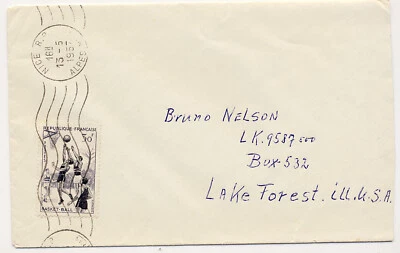 NICE R.P.
16H
13-5
195
ALPES
REPUBLIQUE FRANÇAISE
30F
BASKET-BALL
Bruno NELSON
LK.9587 00
Box-532
Lake Forest. ill. U.S.A.